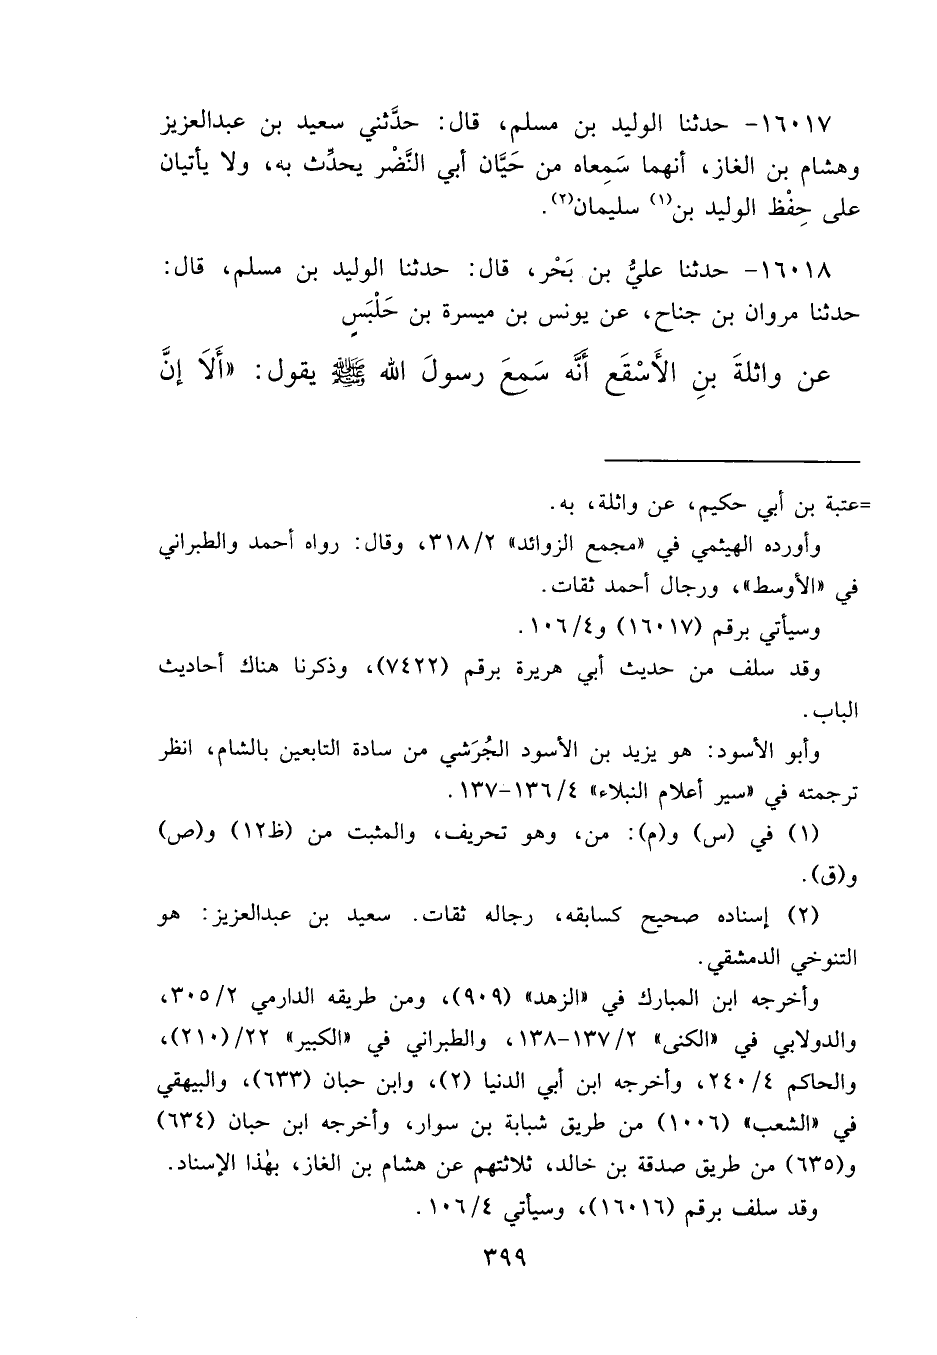 ١٦٠١٧- حدثنا الوليد بن مسلم، قال: حدَّثني سعيد بن عبدالعزيز
وهشام بن الغاز، أنهما سَمِعاه من حَيَّان أبي النَّضْر يحدِّث به، ولا يأتيان
على حِفْظ الوليد بن(١) سليمان(٢).
١٦٠١٨- حدثنا عليُّ بن بَحْر، قال: حدثنا الوليد بن مسلم، قال:
حدثنا مروان بن جناح، عن يونس بن ميسرة بن حَلْبَسٍ
عن واثلةَ بنِ الأَسْقَع أنَّه سَمِعَ رسولَ الله ﷺ يقول: «أَلَا إنَّ
=عتبة بن أبي حكيم، عن واثلة، به.
وأورده الهيثمي في «مجمع الزوائد» ٣١٨/٢، وقال: رواه أحمد والطبراني
في «الأوسط»، ورجال أحمد ثقات.
وسيأتي برقم (١٦٠١٧) و١٠٦/٤.
وقد سلف من حديث أبي هريرة برقم (٧٤٢٢)، وذكرنا هناك أحاديث
الباب.
وأبو الأسود: هو يزيد بن الأسود الجُرَشي من سادة التابعين بالشام، انظر
ترجمته في «سير أعلام النبلاء» ١٣٦/٤-١٣٧.
(١) في (س) و(م): من، وهو تحريف، والمثبت من (ظ١٢) و(ص)
و(ق).
(٢) إسناده صحيح كسابقه، رجاله ثقات. سعيد بن عبدالعزيز: هو
التنوخي الدمشقي.
وأخرجه ابن المبارك في «الزهد» (٩٠٩)، ومن طريقه الدارمي ٣٠٥/٢،
والدولابي في «الكنى» ١٣٧/٢-١٣٨، والطبراني في «الكبير» ٢٢/(٢١٠)،
والحاكم ٢٤٠/٤، وأخرجه ابن أبي الدنيا (٢)، وابن حبان (٦٣٣)، والبيهقي
في «الشعب» (١٠٠٦) من طريق شبابة بن سوار، وأخرجه ابن حبان (٦٣٤)
و(٦٣٥) من طريق صدقة بن خالد، ثلاثتهم عن هشام بن الغاز، بهٰذا الإسناد.
وقد سلف برقم (١٦٠١٦)، وسيأتي ١٠٦/٤.
٣٩٩